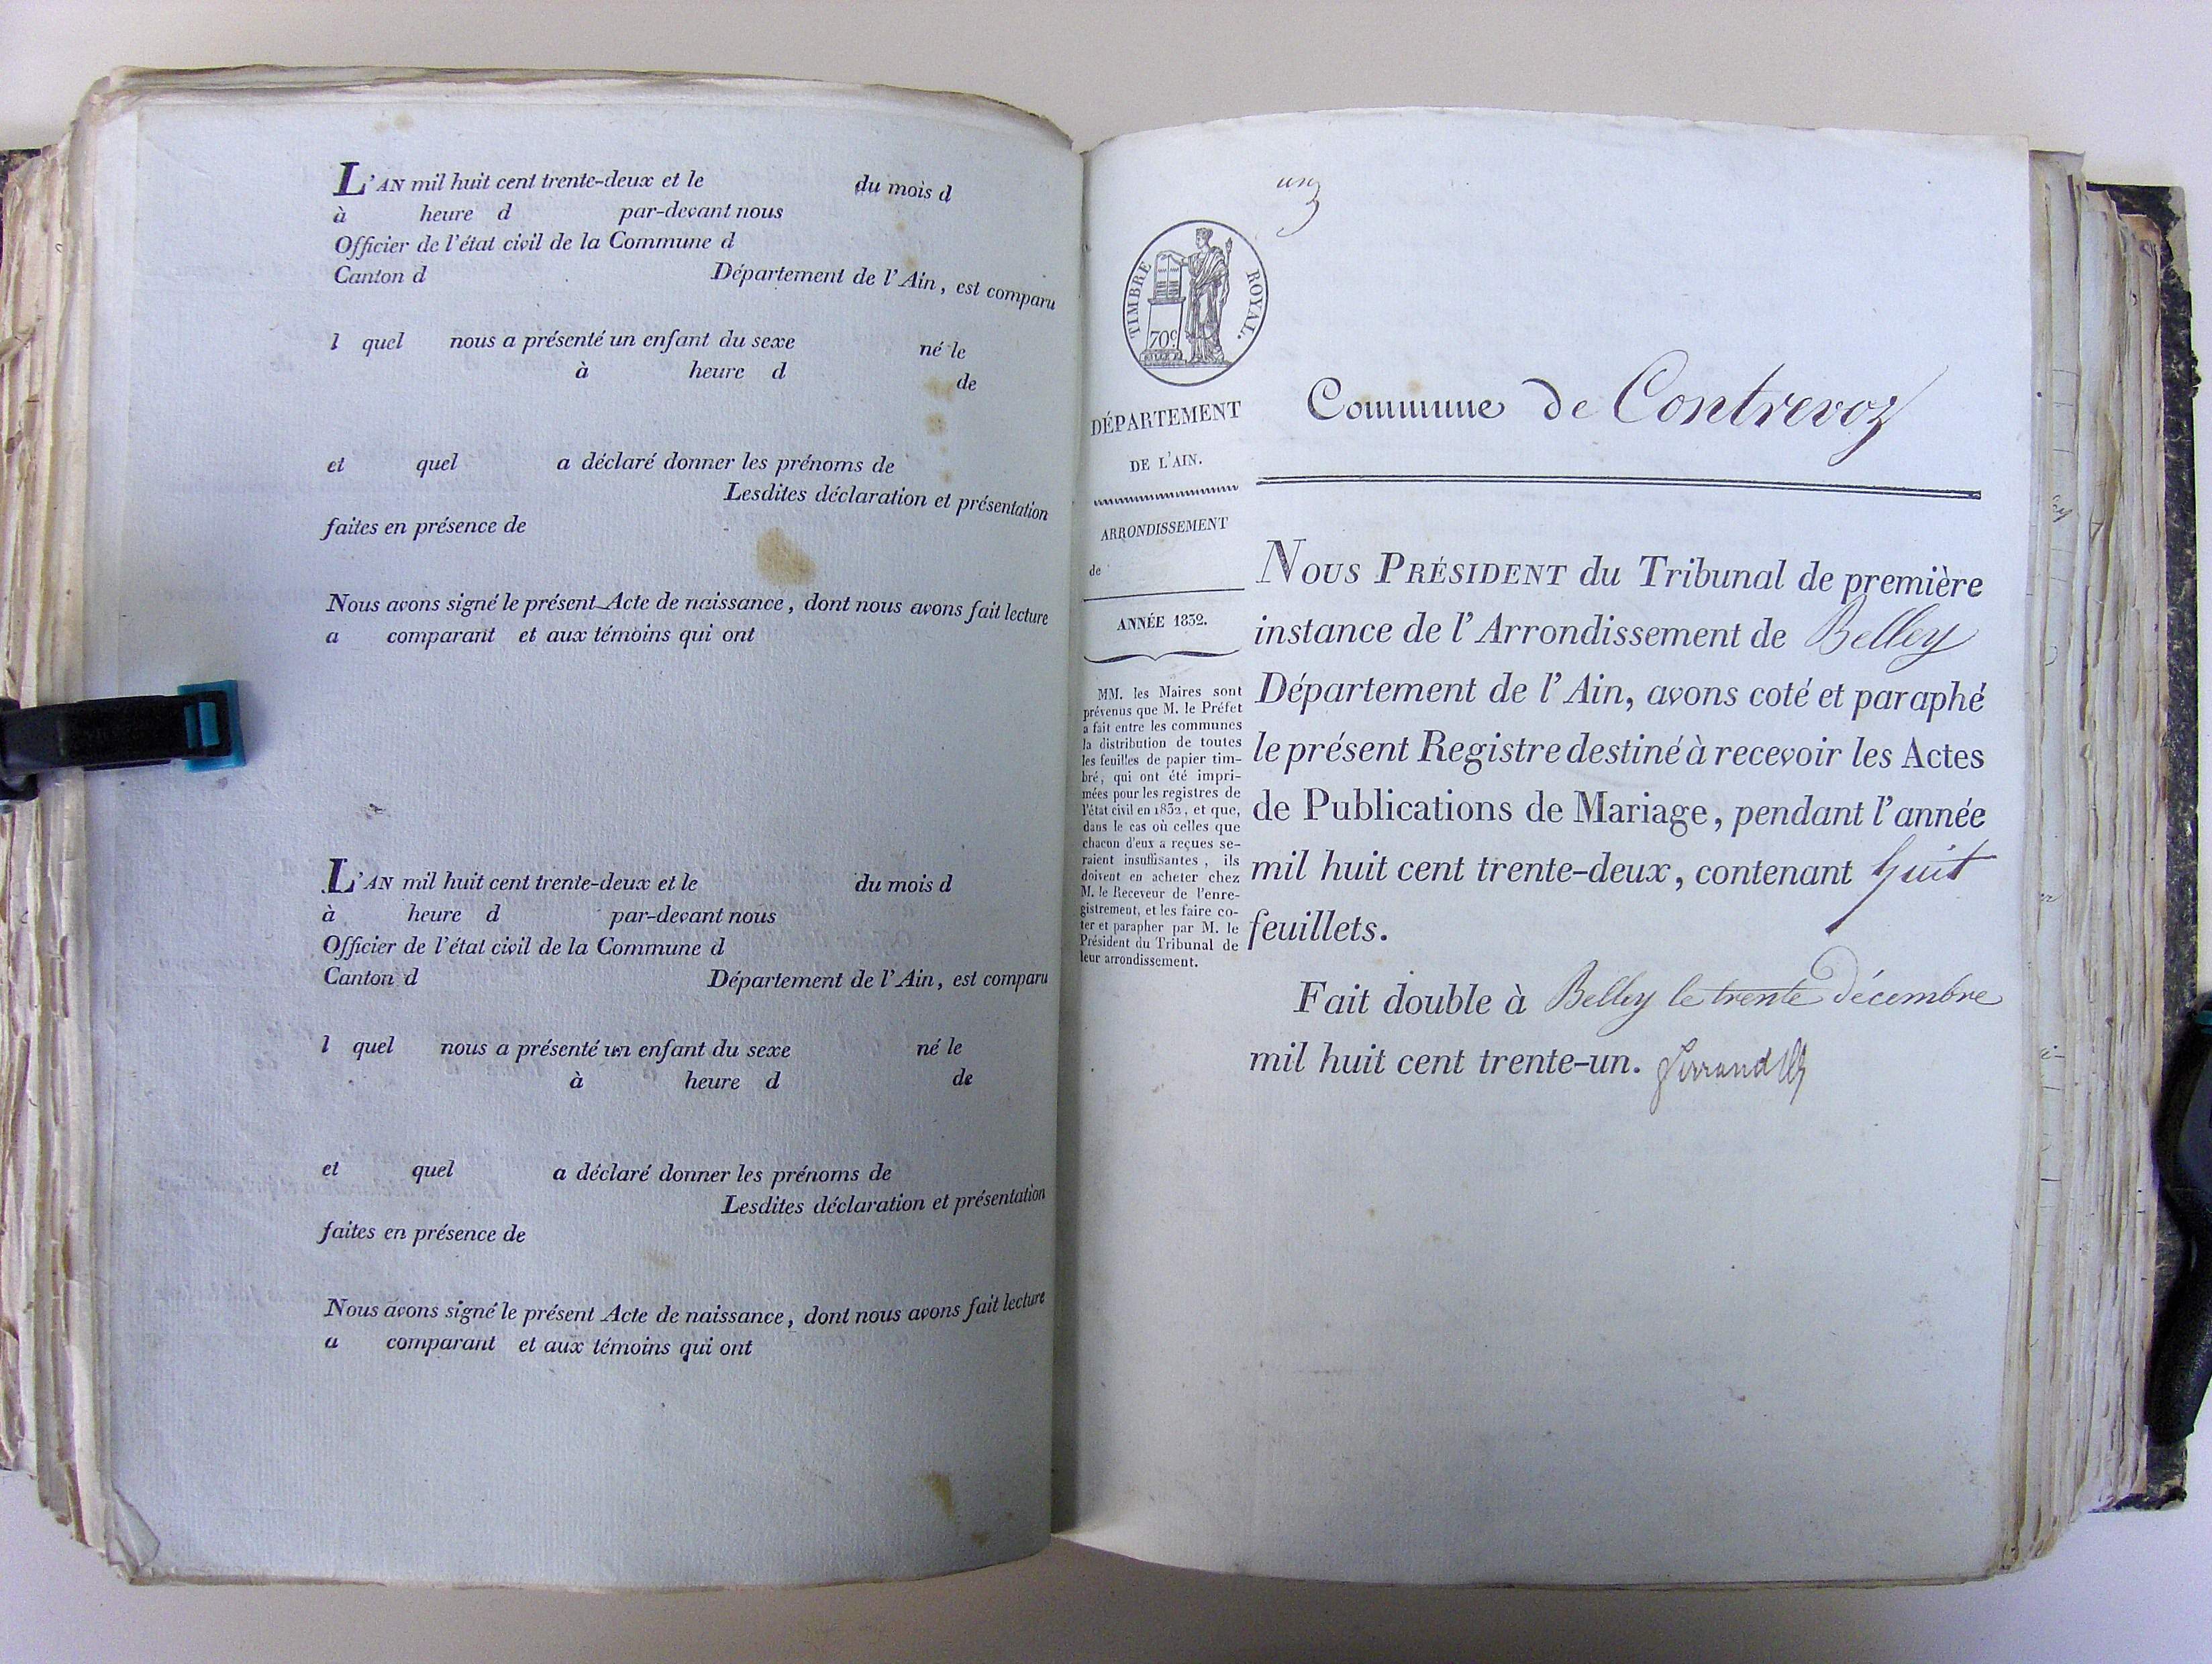 L'AN mil huit cent trente-deux et le du mois d
à heure d par-devant nous
Officier de l'état civil de la Commune d
Canton d Département de l'Ain, est comparu
l quel nous a présenté un enfant du sexe né le
à heure d de
et quel a déclaré donner les prénoms de
Lesdites déclaration et présentation
faites en présence de
Nous avons signé le présent Acte de naissance, dont nous avons fait lecture
a comparant et aux témoins qui ont
L'AN mil huit cent trente-deux et le du mois d
à heure d par-devant nous
Officier de l'état civil de la Commune d
Canton d Département de l'Ain, est comparu
l quel nous a présenté un enfant du sexe né le
à heure d de
et quel a déclaré donner les prénoms de
Lesdites déclaration et présentation
faites en présence de
Nous avons signé le présent Acte de naissance, dont nous avons fait lecture
a comparant et aux témoins qui ont
TIMBRE ROYAL.
70c
DÉPARTEMENT
DE L'AIN.
ARRONDISSEMENT
de
ANNÉE 1832.
MM. les Maires sont
prévenus que M. le Préfet
a fait entre les communes
la distribution de toutes
les feuilles de papier tim-
bré, qui ont été impri-
mées pour les registres de
l'état civil en 1832, et que,
dans le cas où celles que
chacun d'eux a reçues se-
raient insuffisantes, ils
doivent en acheter chez
M. le Receveur de l'enre-
gistrement, et les faire co-
ter et parapher par M. le
Président du Tribunal de
leur arrondissement.
Commune de Contrevoz
NOUS PRÉSIDENT du Tribunal de première
instance de l'Arrondissement de Belley
Département de l'Ain, avons coté et paraphé
le présent Registre destiné à recevoir les Actes
de Publications de Mariage, pendant l'année
mil huit cent trente-deux, contenant huit
feuillets.
Fait double à Belley le trente décembre
mil huit cent trente-un.